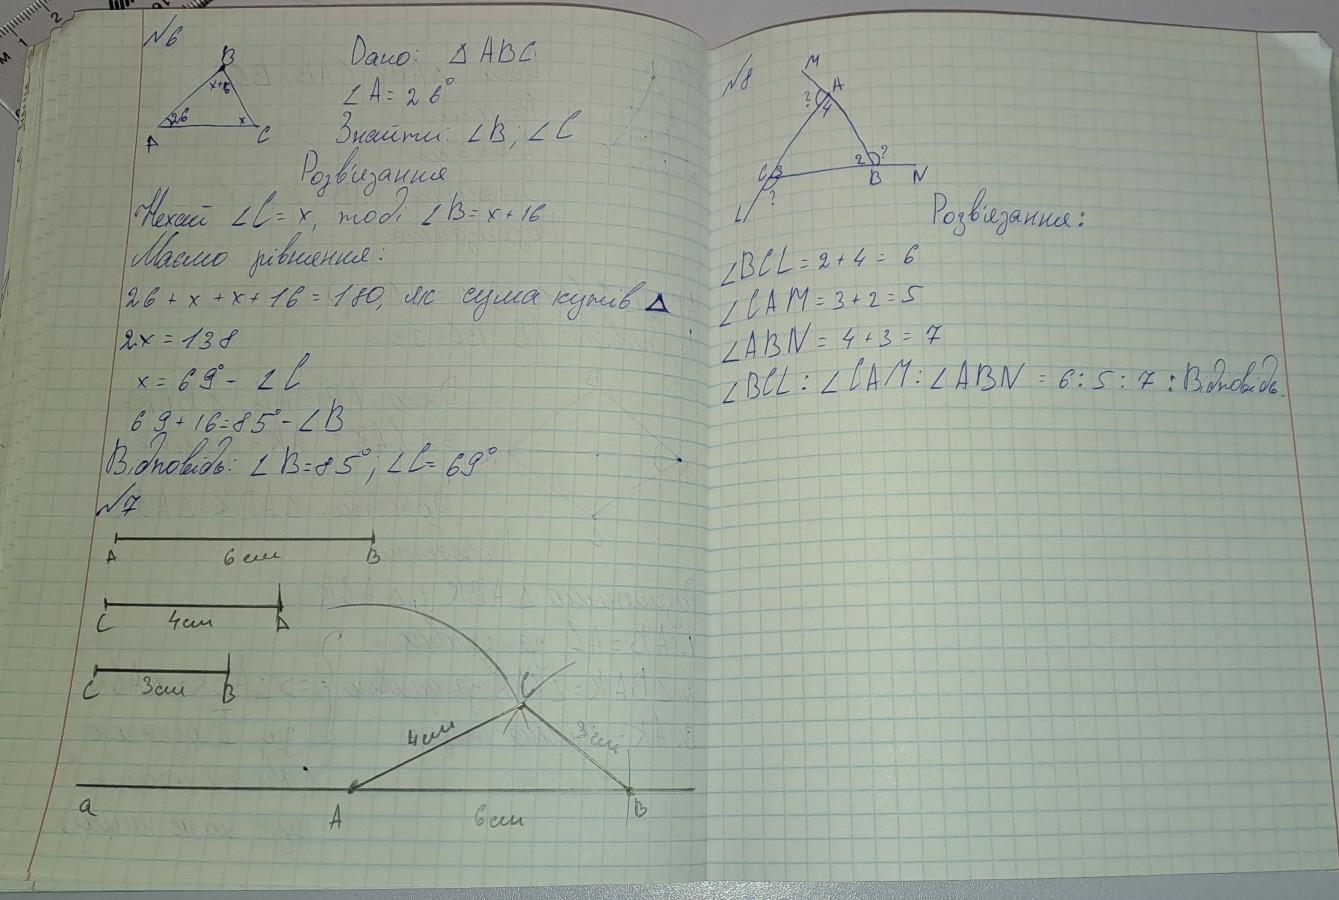 №6
B
x+16
26
x
A
C
Дано: Δ ABC
∠A = 26°
Знайти: ∠B; ∠C
Розв'язання
Нехай ∠C = x, тоді ∠B = x + 16
Маємо рівняння:
26 + x + x + 16 = 180, як сума кутів Δ
2x = 138
x = 69° - ∠C
69 + 16 = 85° - ∠B
Відповідь: ∠B = 85°; ∠C = 69°
№7
A 6 см B
C 4 см D
C 3 см B
C
4 см
3 см
a
A
6 см
B
№8
M
A
?
4
C
3
2
?
B
N
?
L
Розв'язання:
∠BCL = 2 + 4 = 6
∠CAM = 3 + 2 = 5
∠ABN = 4 + 3 = 7
∠BCL : ∠CAM : ∠ABN = 6 : 5 : 7 : Відповідь.